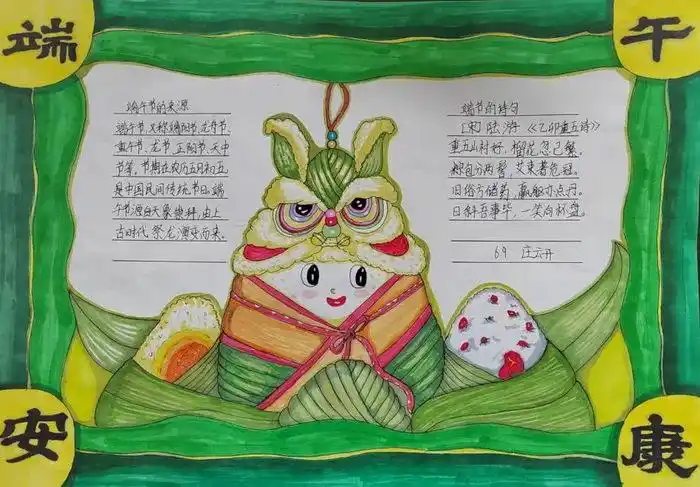 端午
端午节的来源
端午节，又称端阳节、龙舟节、
重午节、龙节、正阳节、天中
节等，节期在农历五月初五，
是中国民间传统节日。端
午节源自天象崇拜，由上
古时代祭龙演变而来。
端节的诗句
［宋］陆游 《乙卯重五诗》
重五山村好，榴花忽已繁。
粽包分两髻，艾束著危冠。
旧俗方储药，羸躯亦点丹。
日斜吾事毕，一笑向杯盘。
6.9 庄云丹
安康